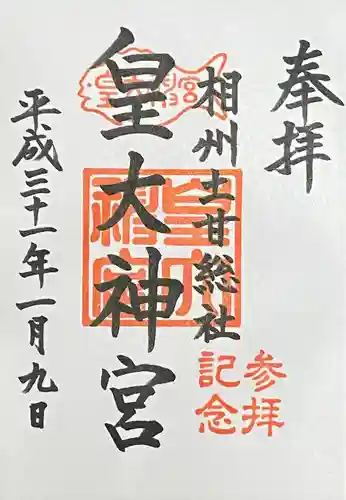 奉拝
相州土甘総社
皇大神宮
平成三十一年一月九日
参拝
記念
皇大神宮